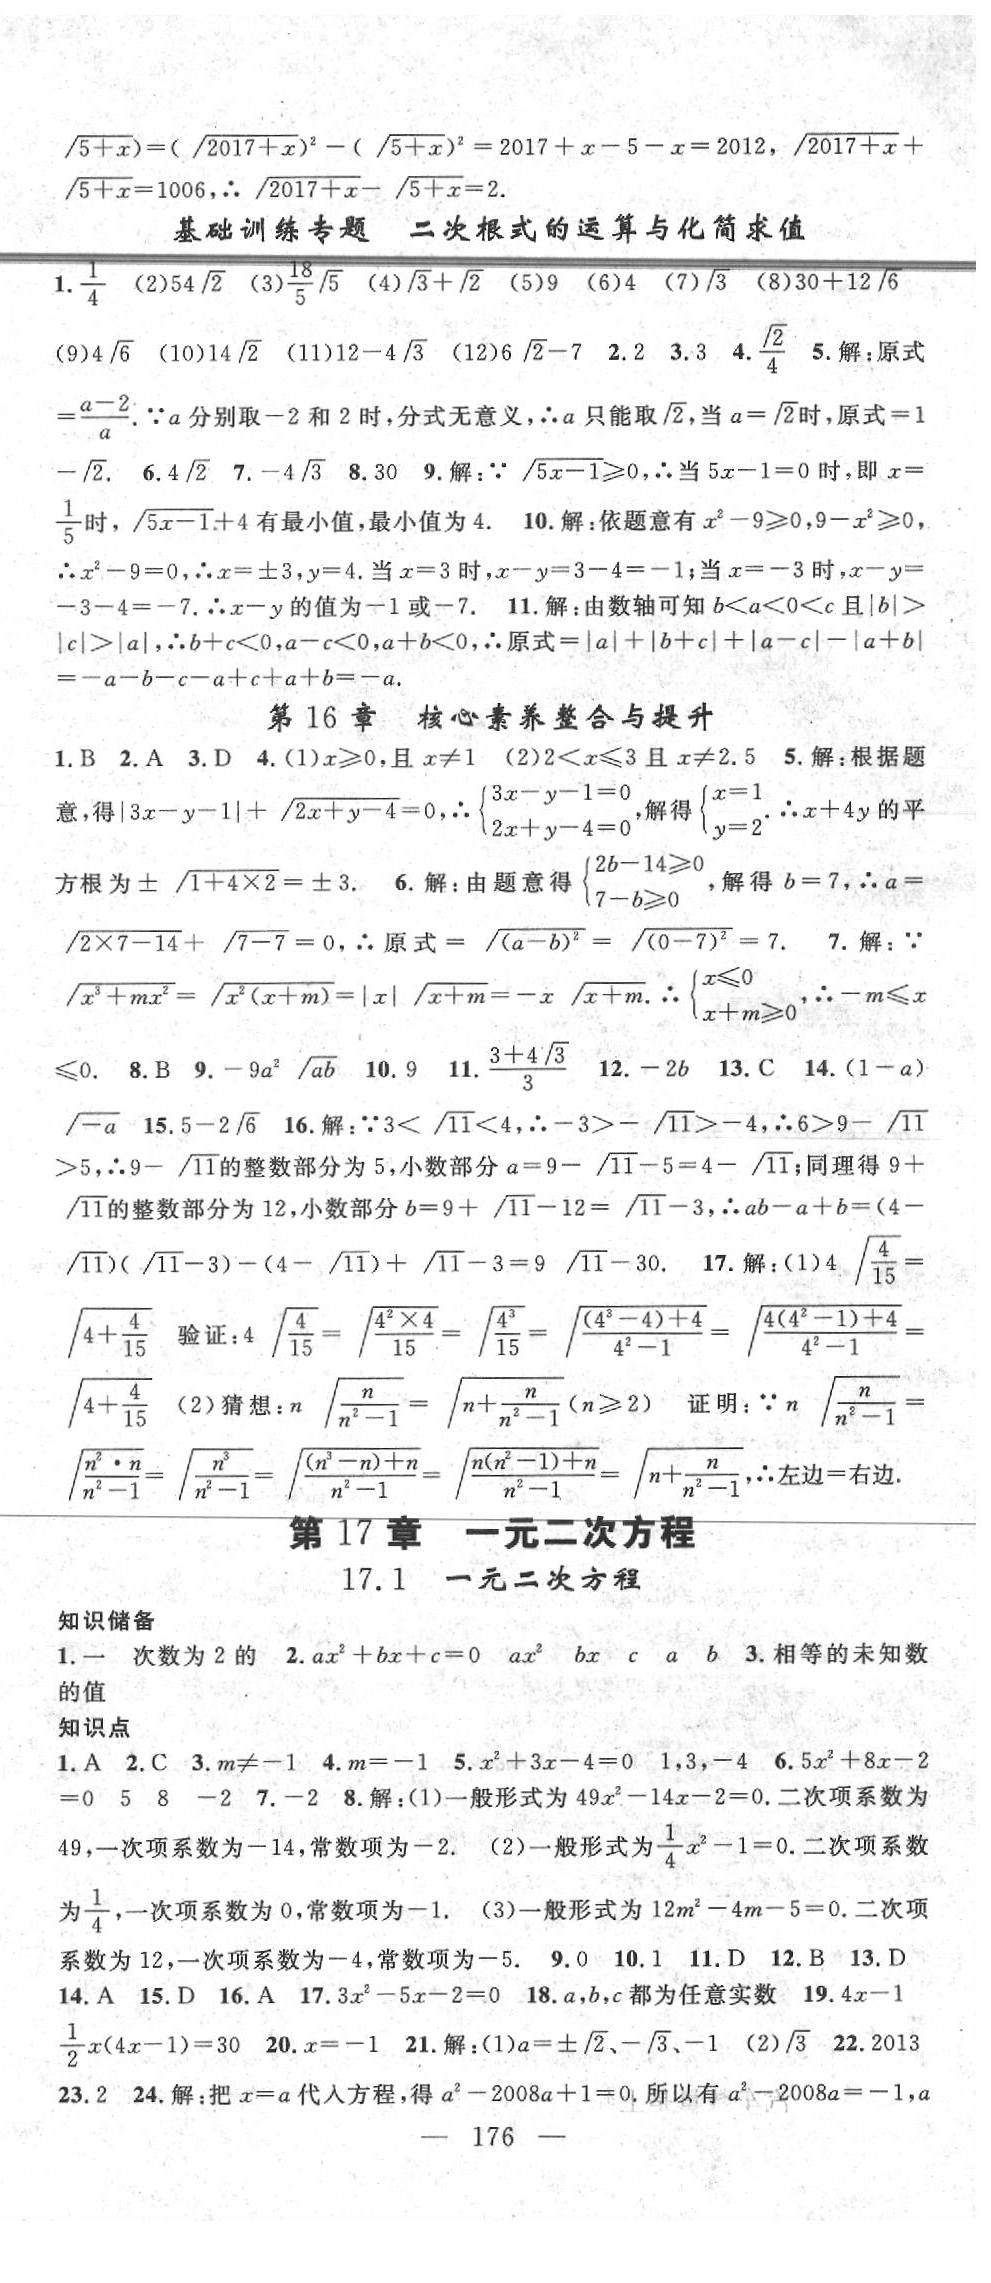 √(5+x))=(√(2017+x))²-(√(5+x))²=2017+x-5-x=2012,√(2017+x)+
√(5+x)=1006,∴√(2017+x)-√(5+x)=2.
基础训练专题 二次根式的运算与化简求值
1.1/4 (2)54√2 (3)18/5√5 (4)√3+√2 (5)9 (6)4 (7)√3 (8)30+12√6
(9)4√6 (10)14√2 (11)12-4√3 (12)6√2-7 2.2 3.3 4.√2/4 5.解:原式
=(a-2)/a.∵a分别取-2和2时,分式无意义,∴a只能取√2,当a=√2时,原式=1
-√2. 6.4√2 7.-4√3 8.30 9.解:∵√(5x-1)≥0,∴当5x-1=0时,即x=
1/5时,√(5x-1)+4有最小值,最小值为4. 10.解:依题意有x²-9≥0,9-x²≥0,
∴x²-9=0,∴x=±3,y=4.当x=3时,x-y=3-4=-1;当x=-3时,x-y=
-3-4=-7.∴x-y的值为-1或-7. 11.解:由数轴可知b<a<0<c且|b|>
|c|>|a|,∴b+c<0,a-c<0,a+b<0,∴原式=|a|+|b+c|+|a-c|-|a+b|
=-a-b-c-a+c+a+b=-a.
第16章 核心素养整合与提升
1.B 2.A 3.D 4.(1)x≥0,且x≠1 (2)2<x≤3且x≠2.5 5.解:根据题
意,得|3x-y-1|+√(2x+y-4)=0,∴{3x-y-1=0 2x+y-4=0,解得{x=1 y=2.∴x+4y的平
方根为±√(1+4×2)=±3. 6.解:由题意得{2b-14≥0 7-b≥0,解得b=7,∴a=
√(2×7-14)+√(7-7)=0,∴原式=√((a-b)²)=√((0-7)²)=7. 7.解:∵
√(x³+mx²)=√(x²(x+m))=|x|√(x+m)=-x√(x+m).∴{x≤0 x+m≥0,∴-m≤x
≤0. 8.B 9.-9a²√(ab) 10.9 11.(3+4√3)/3 12.-2b 13.C 14.(1-a)
√(-a) 15.5-2√6 16.解:∵3<√11<4,∴-3>-√11>-4,∴6>9-√11
>5,∴9-√11的整数部分为5,小数部分a=9-√11-5=4-√11;同理得9+
√11的整数部分为12,小数部分b=9+√11-12=√11-3,∴ab-a+b=(4-
√11)(√11-3)-(4-√11)+√11-3=9√11-30. 17.解:(1)4√(4/15)=
√(4+4/15) 验证:4√(4/15)=√((4²×4)/15)=√(4³/15)=√(((4³-4)+4)/(4²-1))=√((4(4²-1)+4)/(4²-1))=
√(4+4/15) (2)猜想:n√(n/(n²-1))=√(n+n/(n²-1))(n≥2) 证明:∵n√(n/(n²-1))=
√((n²·n)/(n²-1))=√(n³/(n²-1))=√(((n³-n)+n)/(n²-1))=√((n(n²-1)+n)/(n²-1))=√(n+n/(n²-1)),∴左边=右边.
第17章 一元二次方程
17.1 一元二次方程
知识储备
1.一 次数为2的 2.ax²+bx+c=0 ax² bx c a b 3.相等的未知数
的值
知识点
1.A 2.C 3.m≠-1 4.m=-1 5.x²+3x-4=0 1,3,-4 6.5x²+8x-2
=0 5 8 -2 7.-2 8.解:(1)一般形式为49x²-14x-2=0.二次项系数为
49,一次项系数为-14,常数项为-2. (2)一般形式为1/4x²-1=0.二次项系数
为1/4,一次项系数为0,常数项为-1. (3)一般形式为12m²-4m-5=0.二次项
系数为12,一次项系数为-4,常数项为-5. 9.0 10.1 11.D 12.B 13.D
14.A 15.D 16.A 17.3x²-5x-2=0 18.a,b,c都为任意实数 19.4x-1
1/2x(4x-1)=30 20.x=-1 21.解:(1)a=±√2、-√3、-1 (2)√3 22.2013
23.2 24.解:把x=a代入方程,得a²-2008a+1=0.所以有a²-2008a=-1,a
— 176 —